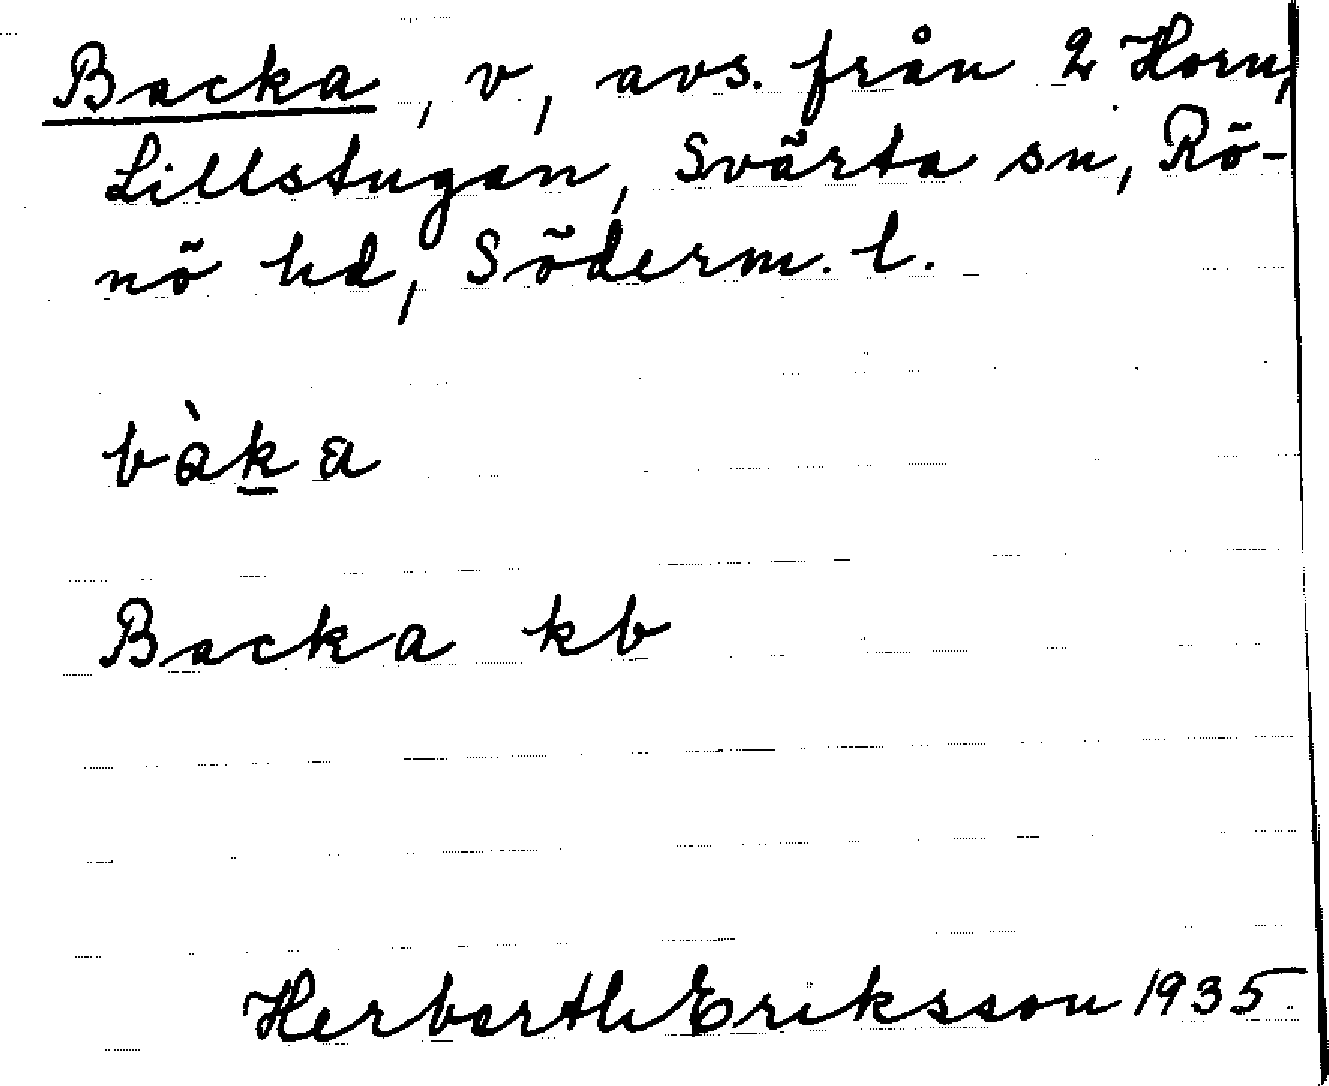 Backa, v, avs. från 2 Horn,
Lillstugan, Svärta sn, Rö-
nö hd, Söderm. l.
bàka
Backa kb
Herberth Eriksson 1935